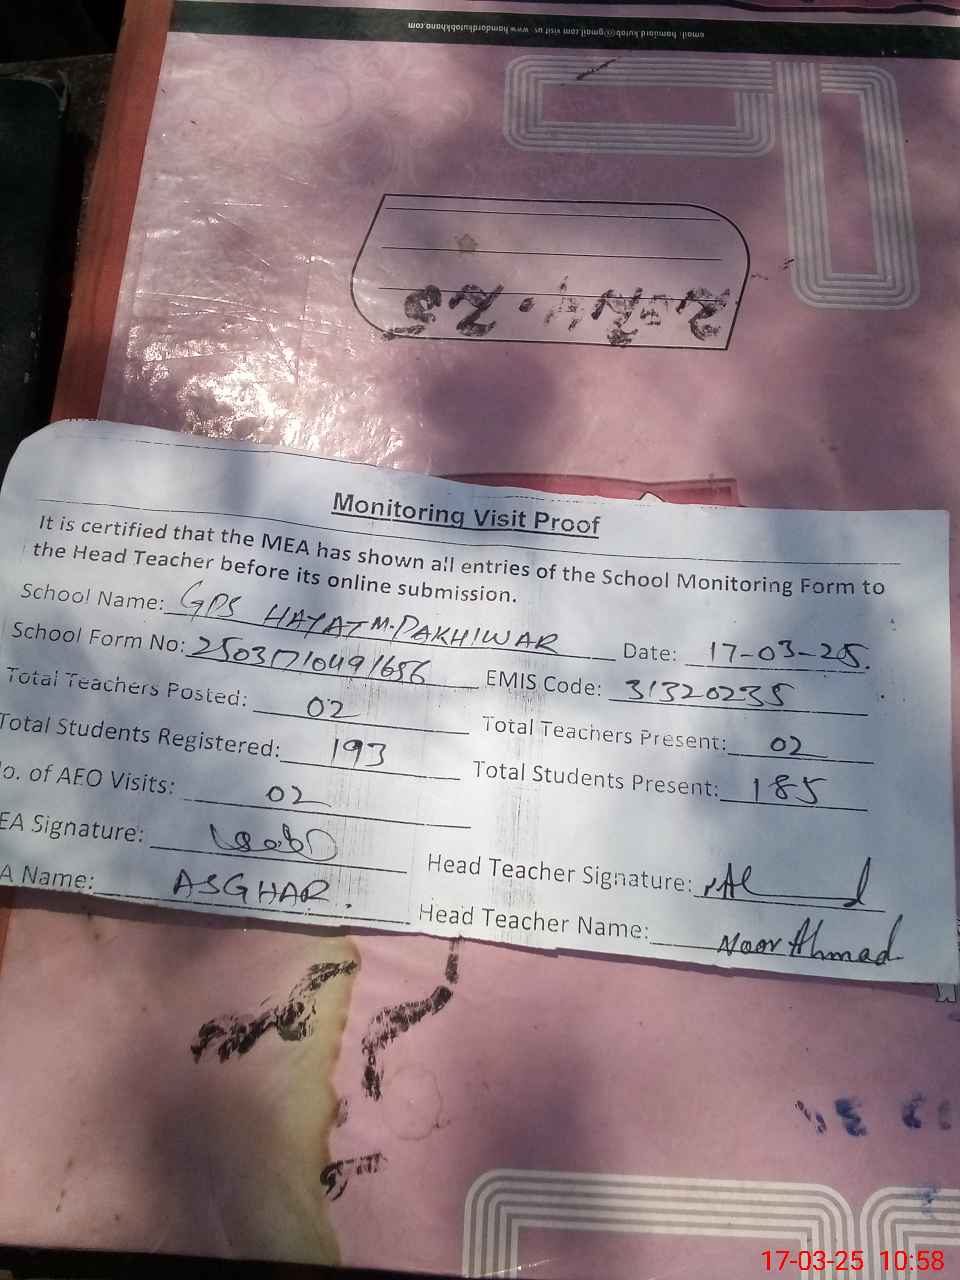 email: hamdard.kutab@gmail.com visit us: www.hamdardkutabkhana.com
Monitoring Visit Proof
It is certified that the MEA has shown all entries of the School Monitoring Form to
the Head Teacher before its online submission.
School Name: GPS HAYAT M. PAKHIWAR Date: 17-03-25.
School Form No: 25031710491656 EMIS Code: 31320235
Total Teachers Posted: 02 Total Teachers Present: 02
Total Students Registered: 193 Total Students Present: 185
o. of AEO Visits: 02
EA Signature: Head Teacher Signature:
A Name: ASGHAR. Head Teacher Name: Noor Ahmad
17-03-25 10:58